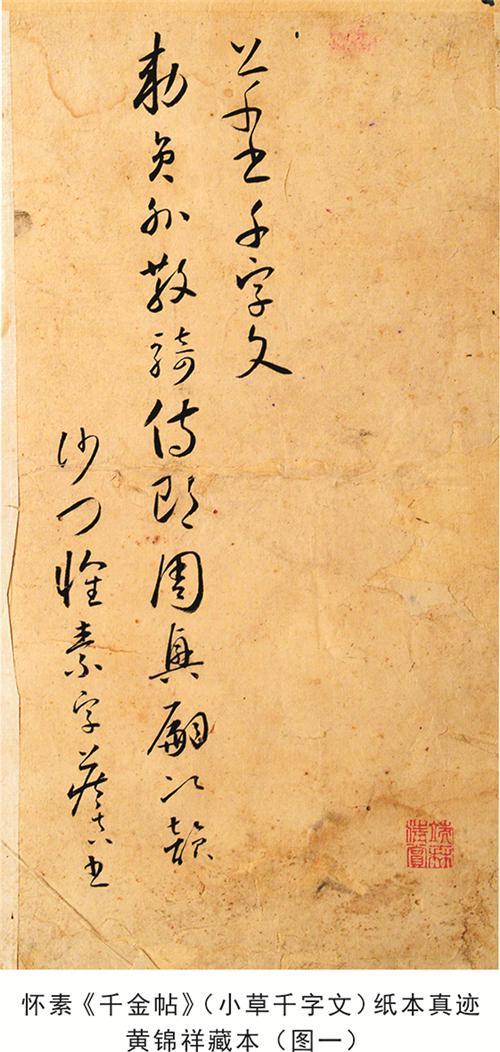 草書千字文
勅員外散騎侍郎周興嗣次韻
沙門懷素字藏真書
怀素《千金帖》（小草千字文）纸本真迹
黄锦祥藏本（图一）